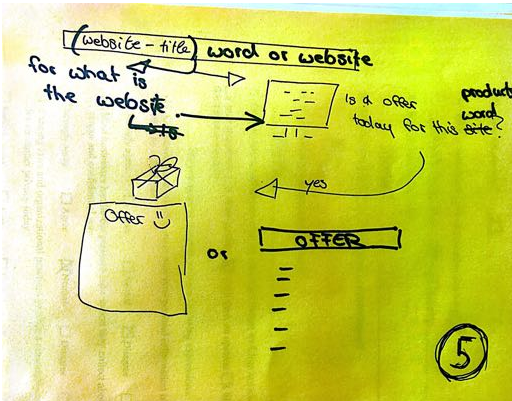 (website - title) word or website
for what is
the website.
Is a offer product
today for this site word?
yes
Offer
or
OFFER
5